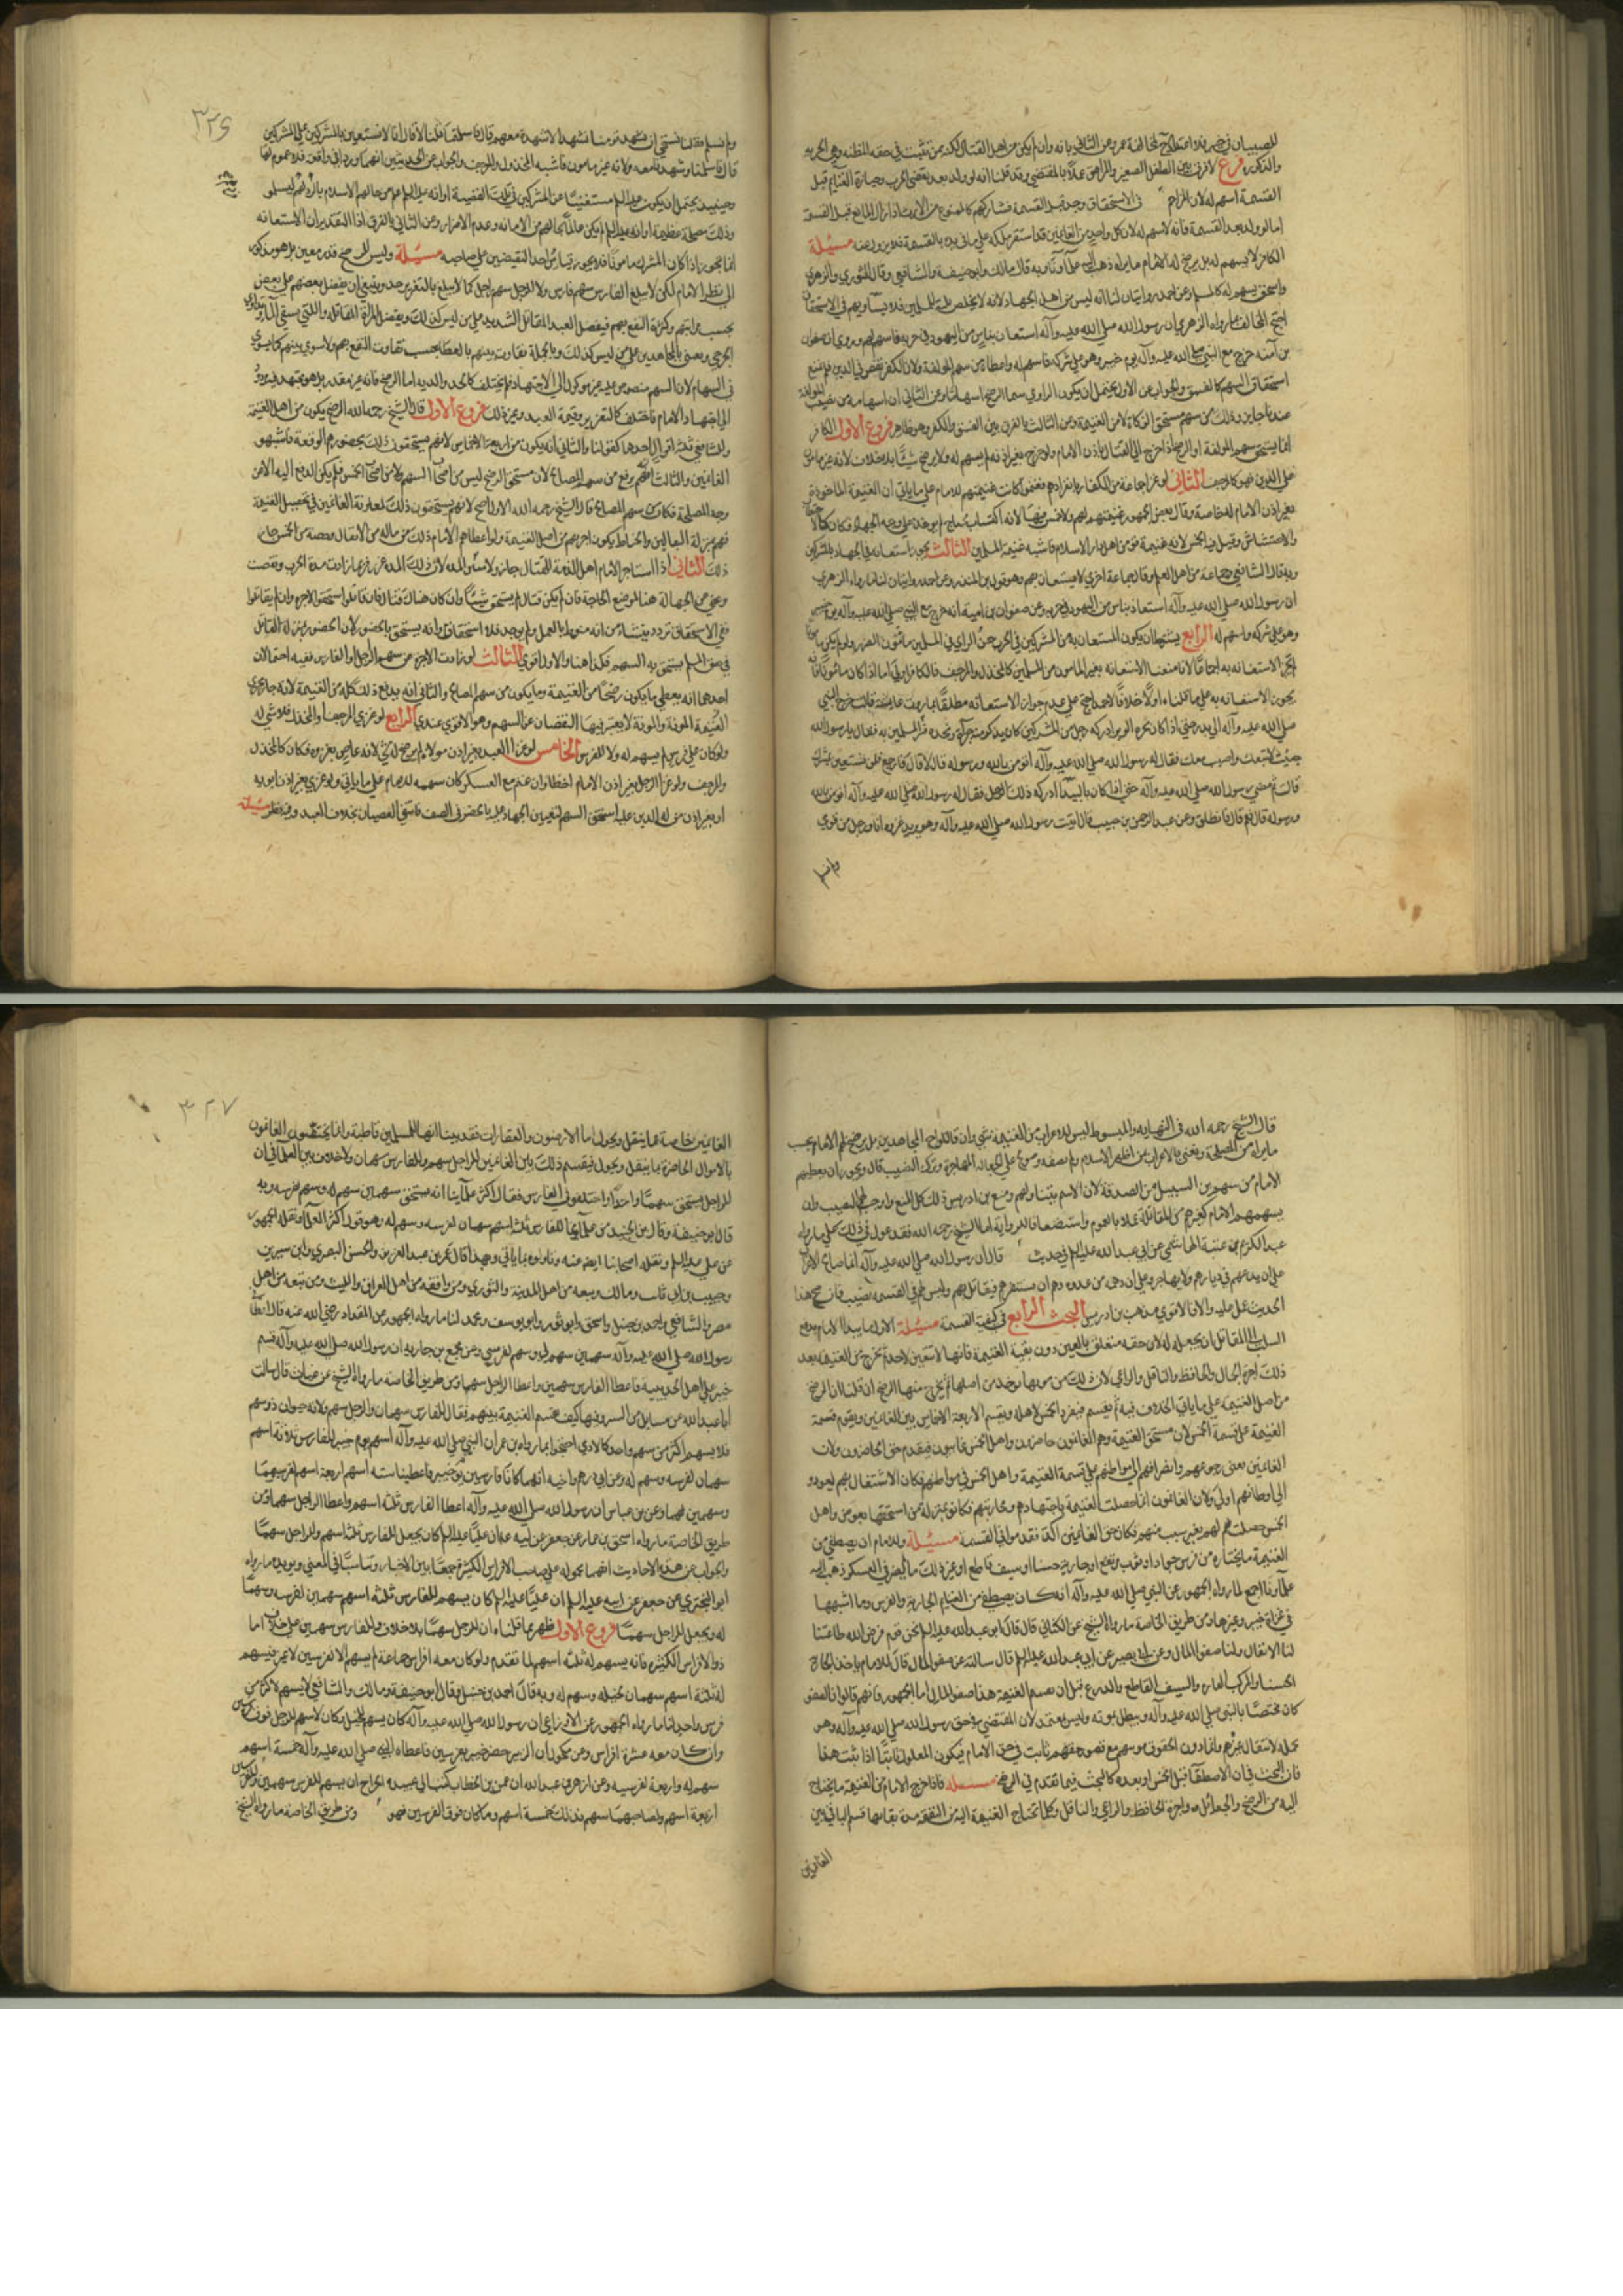 للصبيان في خبر فلا اعتداد به لمخالفة عمر وعن الثاني بانه وان لم يكن من اهل القتال لكنه ممن تثبت في حقه المظنة وهي الحرية
والذكورة فرع لا فرق بين الطفل الصغير والمراهق عملا بالمقتضي وقد قلنا انه لو ولد بعد تقضي الحرب وحيازة الغنايم قبل
القسمة اسهم له لان المزاحم في الاستحقاق وجد قبل القسمة فشاركهم كالممنوع من الارث اذا زال المانع قبل القسمة
اما لو ولد بعد القسمة فانه لا سهم له لان كل واحد من الغانمين قد استقر ملكه على ما في يده بالقسمة فلا يزول عنه مسئلة
الكافر لا يسهم له بل يرضخ له الامام ما يراه ذهب اليه علماؤنا وبه قال مالك وابو حنيفة والشافعي وقال الثوري والزهري
واسحق يسهم له كالمسلم وعن احمد روايتان لنا انه ليس من اهل الجهاد لانه لا يخلص نية للمسلمين فلا يساويهم في الاستحقاق
احتج المخالف بما رواه الزهري ان رسول الله صلى الله عليه وآله استعان بناس من اليهود في حربه فاسهم لهم وروي ان صفوان
بن امية خرج مع النبي صلى الله عليه وآله يوم خيبر وهو على شركه فاسهم له واعطاه من سهم المؤلفة ولان الكفر نقص في الدين فلم يمنع
استحقاق السهم كالفسق والجواب عن الاول يحتمل ان يكون الراوي سمى الرضخ اسهاما وعن الثاني ان اسهامه من نصيب المؤلفة
عندنا جايز وذلك من سهم مستحق الزكاة لا من الغنيمة وعن الثالث بالفرق بين الفسق والكفر وهو ظاهر فروع الاول الكافر
انما يستحق سهم المؤلفة او الرضخ اذا خرج الى القتال باذن الامام ولو خرج بغير اذنه لم يسهم له ولا يرضخ شيئا بلا خلاف لانه غير مامون
على الدين فهو كالمرجف الثاني لو غزا جماعة من الكفار بانفرادهم فغنموا كانت غنيمتهم للامام على ما ياتي ان الغنيمة الماخوذة
بغير اذن الامام له خاصة وقال بعض الجمهور غنيمتهم لهم ولا خمس فيها لانه اكتساب مباح لم يوخذ على وجه الجهاد فكان كالاحتطاب
والاحتشاش وقيل فيه الخمس لانه غنيمة قوم من اهل دار الاسلام فاشبه غنيمة المسلمين الثالث يجوز استعانة في الجهاد بالمشركين
وبه قال الشافعي وجماعة من اهل العلم وقال جماعة اخرى لا يستعان بهم وهو قول بن المنذر وعن احمد روايتان لنا ما رواه الزهري
ان رسول الله صلى الله عليه وآله استعان بناس من اليهود في حربه وعن صفوان بن امية انه خرج مع النبي صلى الله عليه وآله يوم خيبر
وهو على شركه واسهم له الرابع يشترط ان يكون المستعان به من المشركين في الحرب حسن الراي في المسلمين مامون الضرر ولو لم يكن مامونا
لم تجز الاستعانة به اجماعا لانا منعنا الاستعانة بغير المامون من المسلمين كالمخذل والمرجف فالكافر اولى اما اذا كان مامونا فانه
يجوز الاستعانة به على ما قلناه اولا خلافا لاحمد احتج على عدم جواز الاستعانة مطلقا بما روت عايشة قالت خرج النبي
صلى الله عليه وآله الى بدر حتى اذا كان بحرة الوبر ادركه رجل من المشركين كان يذكر منه جراة ونجدة فسر المسلمين به فقال يا رسول الله
جيت لاتبعك واصيب معك فقال له رسول الله صلى الله عليه وآله اتؤمن بالله ورسوله قال لا قال فارجع فلن نستعين بمشرك
قالت ثم مضى رسول الله صلى الله عليه وآله حتى اذا كان بالبيداء ادركه ذلك الرجل فقال له رسول الله صلى الله عليه وآله اتؤمن بالله
ورسوله قال نعم قال فانطلق وعن عبد الرحمن بن حبيب قال اتيت رسول الله صلى الله عليه وآله وهو يريد غزوة انا ورجل من قومي
ولم نسلم
٣٢٦
ولم نسلم فقلنا نستحي ان يشهد قومنا مشهدا لا نشهده معهم قال فاسلمتما قلنا لا قال فانا لا نستعين بالمشركين على المشركين
قال فاسلمنا وشهدنا معه ولانه غير مامون فاشبه المخذول والمرجف والجواب عن الحديثين انهما وردا في واقعة فلا عموم لها
وحينيذ يحتمل ان يكون عليه السلم مستغنيا عن المشركين في تلك القضية او انه عليه السلم علم من حالهم الاسلام بالرد لهم ليسلموا
وذلك مصلحة عظيمة او انه عليه السلم لم يكن عالما بحالهم من الامانة وعدم الاضرار وعن الثاني بالفرق اذ التقدير ان الاستعانة
انما تجوز اذا كان المشرك مامونا فلا يجوز قياس احد النقيضين على صاحبه مسئلة وليس للرضخ قدر معين بل هو موكول
الى نظر الامام لكن لا يبلغ الفارس سهم فارس ولا للراجل سهم راجل كما لا يبلغ بالتعزير الحد وينبغي ان يفضل بعضهم على بعض
بحسب مراتبهم وكثرة النفع بهم فيفضل العبد المقاتل الشديد على من ليس كذلك ويفضل المراة المقاتلة واللتي تسقي الماء وتداوي
الجرحى وتعنى بالمجاهدين على من ليس كذلك وبالجملة تفاوت بينهم بالعطا بحسب تفاوت النفع بهم ولا يسوي بينهم كما يسوي
في السهام لان السهم منصوص عليه غير موكول الى الاجتهاد فلم يختلف كالحد والدية اما الرضخ فانه غير مقدر بل هو مجتهد فيه مردود
الى اجتهاد الامام فاختلف كالتعزير وقيمة العبد وغير ذلك فروع الاول قال الشيخ رحمه الله الرضخ يكون من اهل الغنيمة
وللشافعي ثلاثة اقوال احدها كقولنا والثاني انه يكون من اربعة الاخماس لانهم يستحقون ذلك بحضورهم الوقعة فاشبهوا
الغانمين والثالث انهم يدفع من سهم المصالح لان مستحق الرضخ ليس من اصحاب السهم ولا من اصحاب الخمس فلم يكن الدفع اليه الا من
وجه المصلحة فكان من سهم المصالح قال الشيخ رحمه الله الاول اصح لانهم يستحقون ذلك لمعاونة الغانمين في تحصيل الغنيمة
فهم بمنزلة البغالين والحفاظ يكون اجرهم من اصل الغنيمة ولو اعطاهم الامام ذلك من ماله من الانفال وحصته من الخمس جاز
ذلك الثاني اذا استاجر الامام اهل الذمة للقتال جاز ولا يبين المدة لان ذلك المدة غرر فربما زادت مدة الحرب ونقصت
وعفي عن الجهالة هنا لموضع الحاجة فان لم يكن قتال لم يستحق شيئا وان كان هناك قتال فان قاتلوا استحقوا الاجرة وان لم يقاتلوا
ففي الاستحقاق تردد ينشا من انه منوط بالعمل ولم يوجد فلا استحقاق ومن انه يستحق بالحضور لان الحضور بمنزلة القاتل
في حق المسلم يستحق به السهم فكذا هنا والاول اقوى الثالث لو زادت الاجرة عن سهم الراجل او الفارس ففيه احتمالان
احدهما انه يعطي ما يكون رضخا من الغنيمة وما يكون من سهم المصالح والثاني انه يدفع ذلك كله من الغنيمة لانه جار مجرى
الغنيمة المونة والمونة لا يعتبر فيها النقصان عن السهم وهو الاقوى عندي الرابع لو غزى المرجف والمخذل فلا شي له
ولو كان على فرس لم يسهم له ولا لفرسه الخامس لو غزا العبد بغير اذن مولاه لم يرضخ له شي لانه عاص بغزوه فكان كالمخذل
والمرجف ولو غزا الرجل بغير اذن الامام اخطا وان غنم مع العسكر كان سهمه للامام على ما ياتي ولو غزى بغير اذن ابويه
او بغير اذن من له الدين عليه استحق السهم لتعيين الجهاد عليه بالحضور في الصف فاسقى العصيان بخلاف العبد وفيه نظر مسئلة
قال الشيخ رحمه الله في النهاية والمبسوط ليس للاعراب من الغنيمة شي وان قاتلوا مع المجاهدين بل يرضخ لهم الامام بحسب
ما يراه من المصلحة ونعني بالاعراب من اظهر الاسلام ولم يصفه وصولح على اعفائه عن المهاجرة وترك النصيب قال ويجوز ان يعطيهم
الامام من سهم بن السبيل من الصدقة لان الاسم يتناولهم ومنع بن ادريس ذلك كل المنع واوجب لهم النصيب وان
يسهمهم الامام كغيرهم من المقاتلة عملا بالعموم واستضعافا للرواية اما الشيخ رحمه الله فقد عول في ذلك على ما رواه
عبد الكريم بن عتبة الهاشمي عن ابي عبد الله عليه السلم في حديث قال ان رسول الله صلى الله عليه وآله انما صالح الاعراب
على ان يدعهم في ديارهم ولا يهاجروا وعلى ان دهمه من عدوه دهم ان يستنفرهم فيقاتل بهم وليس لهم في القسمة نصيب فان صح هذا
الحديث عمل عليه والا فالاقوى مذهب بن ادريس البحث الرابع في كيفية القسمة مسئلة الاول ما يبدا الامام بدفع
السلب الى المقاتل ان يجعله له لان حقه متعلق بالعين دون بقية الغنيمة فانها لا تتعين لاحد ثم يخرج من الغنيمة بعد
ذلك اجرة الحمال والحافظ والناقل والراعي لان ذلك من مونها يوخذ من اصلها ثم يخرج منها الرضخ ان قلنا ان الرضخ
من اصل الغنيمة على ما ياتي الخلاف فيه ثم يقسم فيفرد الخمس لاهله ويقسم الاربعة الاخماس بين الغانمين ويقدم قسمة
الغنيمة على قسمة الخمس لان مستحق الغنيمة وهم الغانمون حاضرون واهل الخمس غايبون فيقدم حق الحاضرون ولان
الغانمين يعنى رجوعهم وانصرافهم الى مواطنهم على قسمة الغنيمة واهل الخمس في مواطنهم فكان الاشتغال بهم ليعودوا
الى اوطانهم اولى ولان الغانمون انما حصلت الغنيمة باجتهادهم ومحاربتهم فكانوا بمنزلة من استحقها بعوض واهل
الخمس حصلت لهم بغير سبب منهم فكان حق الغانمين اكد فقدموا في القسمة مسئلة وللامام ان يصطفي من
الغنيمة ما يختاره من فرس جواد او ثوب مرتفع او جارية حسناء او سيف قاطع او غير ذلك ما لم يضر في العسكر ذهب اليه
علماؤنا اجمع لما رواه الجمهور عن النبي صلى الله عليه وآله انه كان يصطفي من الغنايم الجارية والفرس وما اشبهها
في غزاة خيبر وغيرها ومن طريق الخاصة ما رواه الشيخ عن الكناني قال قال ابو عبد الله عليه السلم نحن قوم فرض الله طاعتنا
لنا الانفال ولنا صفو المال وعن ابي بصير عن ابي عبد الله عليه السلم قال سالته عن صفو المال قال للامام ياخذ الجارية
الحسناء والمركب الفاره والسيف القاطع والدرع قبل ان تقسم الغنيمة هذا صفو المال اما الجمهور فانهم قالوا ان الصفو
كان مختصا بالنبي صلى الله عليه وآله ويبطل بموته وليس بمعتمد لان المقتضي في حق رسول الله صلى الله عليه وآله وهو
فان البحث في ان الاصطفا قبل الخمس او بعده كالبحث فيما تقدم في الرضخ مسئلة فاذا خرج الامام من الغنيمة ما يحتاج
اليه من الرضخ والجعائل واجرة الحافظ والراعي والناقل وكلما تحتاج الغنيمة اليه من النفقة مدة بقايها قسم الباقي بين
الغانمين
٣٢٧
الغانمين خاصة مما ينقل ويحول اما الارضون والعقارات فقد بينا انها للمسلمين قاطبة وانما يختص الغانمون
بالاموال الحاضرة مما ينقل ويحول فيقسم ذلك بين الغانمين للراجل سهم وللفارس سهمان ولا خلاف بين العلماء في ان
للراجل يستحق سهما واحدا واختلفوا في الفارس فقال اكثر علمائنا انه يستحق سهمين سهم له وسهم لفرسه وبه
قال ابو حنيفة وقال بن الجنيد من علمائنا للفارس ثلثة اسهم سهمان لفرسه وسهم له وهو قول اكثر العلماء ونقله الجمهور
عن علي عليه السلم ونقله اصحابنا ايضا عنه وتاولوه بما ياتي وبهذا قال عمر بن عبد العزيز والحسن البصري وابن سيرين
وحبيب بن ابي ثابت ومالك ومن تبعه من اهل المدينة والثوري ومن وافقه من اهل العراق والليث ومن تبعه من اهل
مصر والشافعي واحمد بن حنبل واسحق وابو ثور وابو يوسف ومحمد لنا ما رواه الجمهور عن المقداد رضي الله عنه قال اعطاني
رسول الله صلى الله عليه وآله سهمين سهم لي وسهم لفرسي وعن مجمع بن جارية ان رسول الله صلى الله عليه وآله قسم
خيبر على اهل الحديبية فاعطا الفارس سهمين واعطا الراجل سهما ومن طريق الخاصة ما رواه الشيخ عن حفص بن غياث قال سالت
ابا عبد الله عن مسايل من السير وفيها كيف تقسم الغنيمة بينهم فقال للفارس سهمان وللراجل سهم ولانه حيوان ذو سهم
فلا يسهم اكثر من سهم واحد كالادمي احتجوا بما رواه بن عمر ان النبي صلى الله عليه وآله اسهم يوم خيبر للفارس ثلاثة اسهم
سهمان لفرسه وسهم له وعن ابي رهم واخيه انهما كانا فارسين يوم خيبر فاعطينا ستة اسهم اربعة اسهم لفرسيهما
وسهمين لهما وعن بن عباس ان رسول الله صلى الله عليه وآله اعطا الفارس ثلثة اسهم واعطا الراجل سهما ومن
طريق الخاصة ما رواه اسحق بن عمار عن جعفر عن ابيه عن علي عليه السلم كان يجعل للفارس ثلثة اسهم وللراجل سهما
والجواب عن هذه الاحاديث انها محمولة على صاحب الافراس الكثيرة جمعا بين الاخبار وتناسبا في المعنى ويؤيده ما رواه
ابو البختري عن جعفر عن ابيه عليه السلم ان عليا عليه السلم كان يسهم للفارس ثلثة اسهم سهمين لفرسه وسهما
له ويجعل للراجل سهما فروع الاول ظهر بما قلناه ان للرجل سهما بلا خلاف وللفارس سهمين على خلاف اما
ذو الافراس الكثيرة فانه يسهم له ثلثة اسهم لما تقدم ولو كان معه افراس جماعة لم يسهم الا لفرسين لا غير فيسهم
له ثلثة اسهم سهمان لخيله وسهم له وبه قال احمد بن حنبل وقال ابو حنيفة ومالك والشافعي لا يسهم لاكثر من
فرس واحد لنا ما رواه الجمهور عن الاوزاعي ان رسول الله صلى الله عليه وآله كان يسهم للخيل وكان لا يسهم للرجل فوق فرسين
وان كان معه عشرة افراس وعن مكحول ان الزبير حضر خيبر بفرسين فاعطاه النبي صلى الله عليه وآله خمسة اسهم
سهم له واربعة لفرسيه وعن ازهر بن عبد الله ان عمر بن الخطاب كتب الى ابي عبيدة بن الجراح ان يسهم للفرس سهمين وللفرسين
اربعة اسهم ولصاحبهما سهم فذلك خمسة اسهم وما كان فوق الفرسين فهو ومن طريق الخاصة ما رواه الشيخ